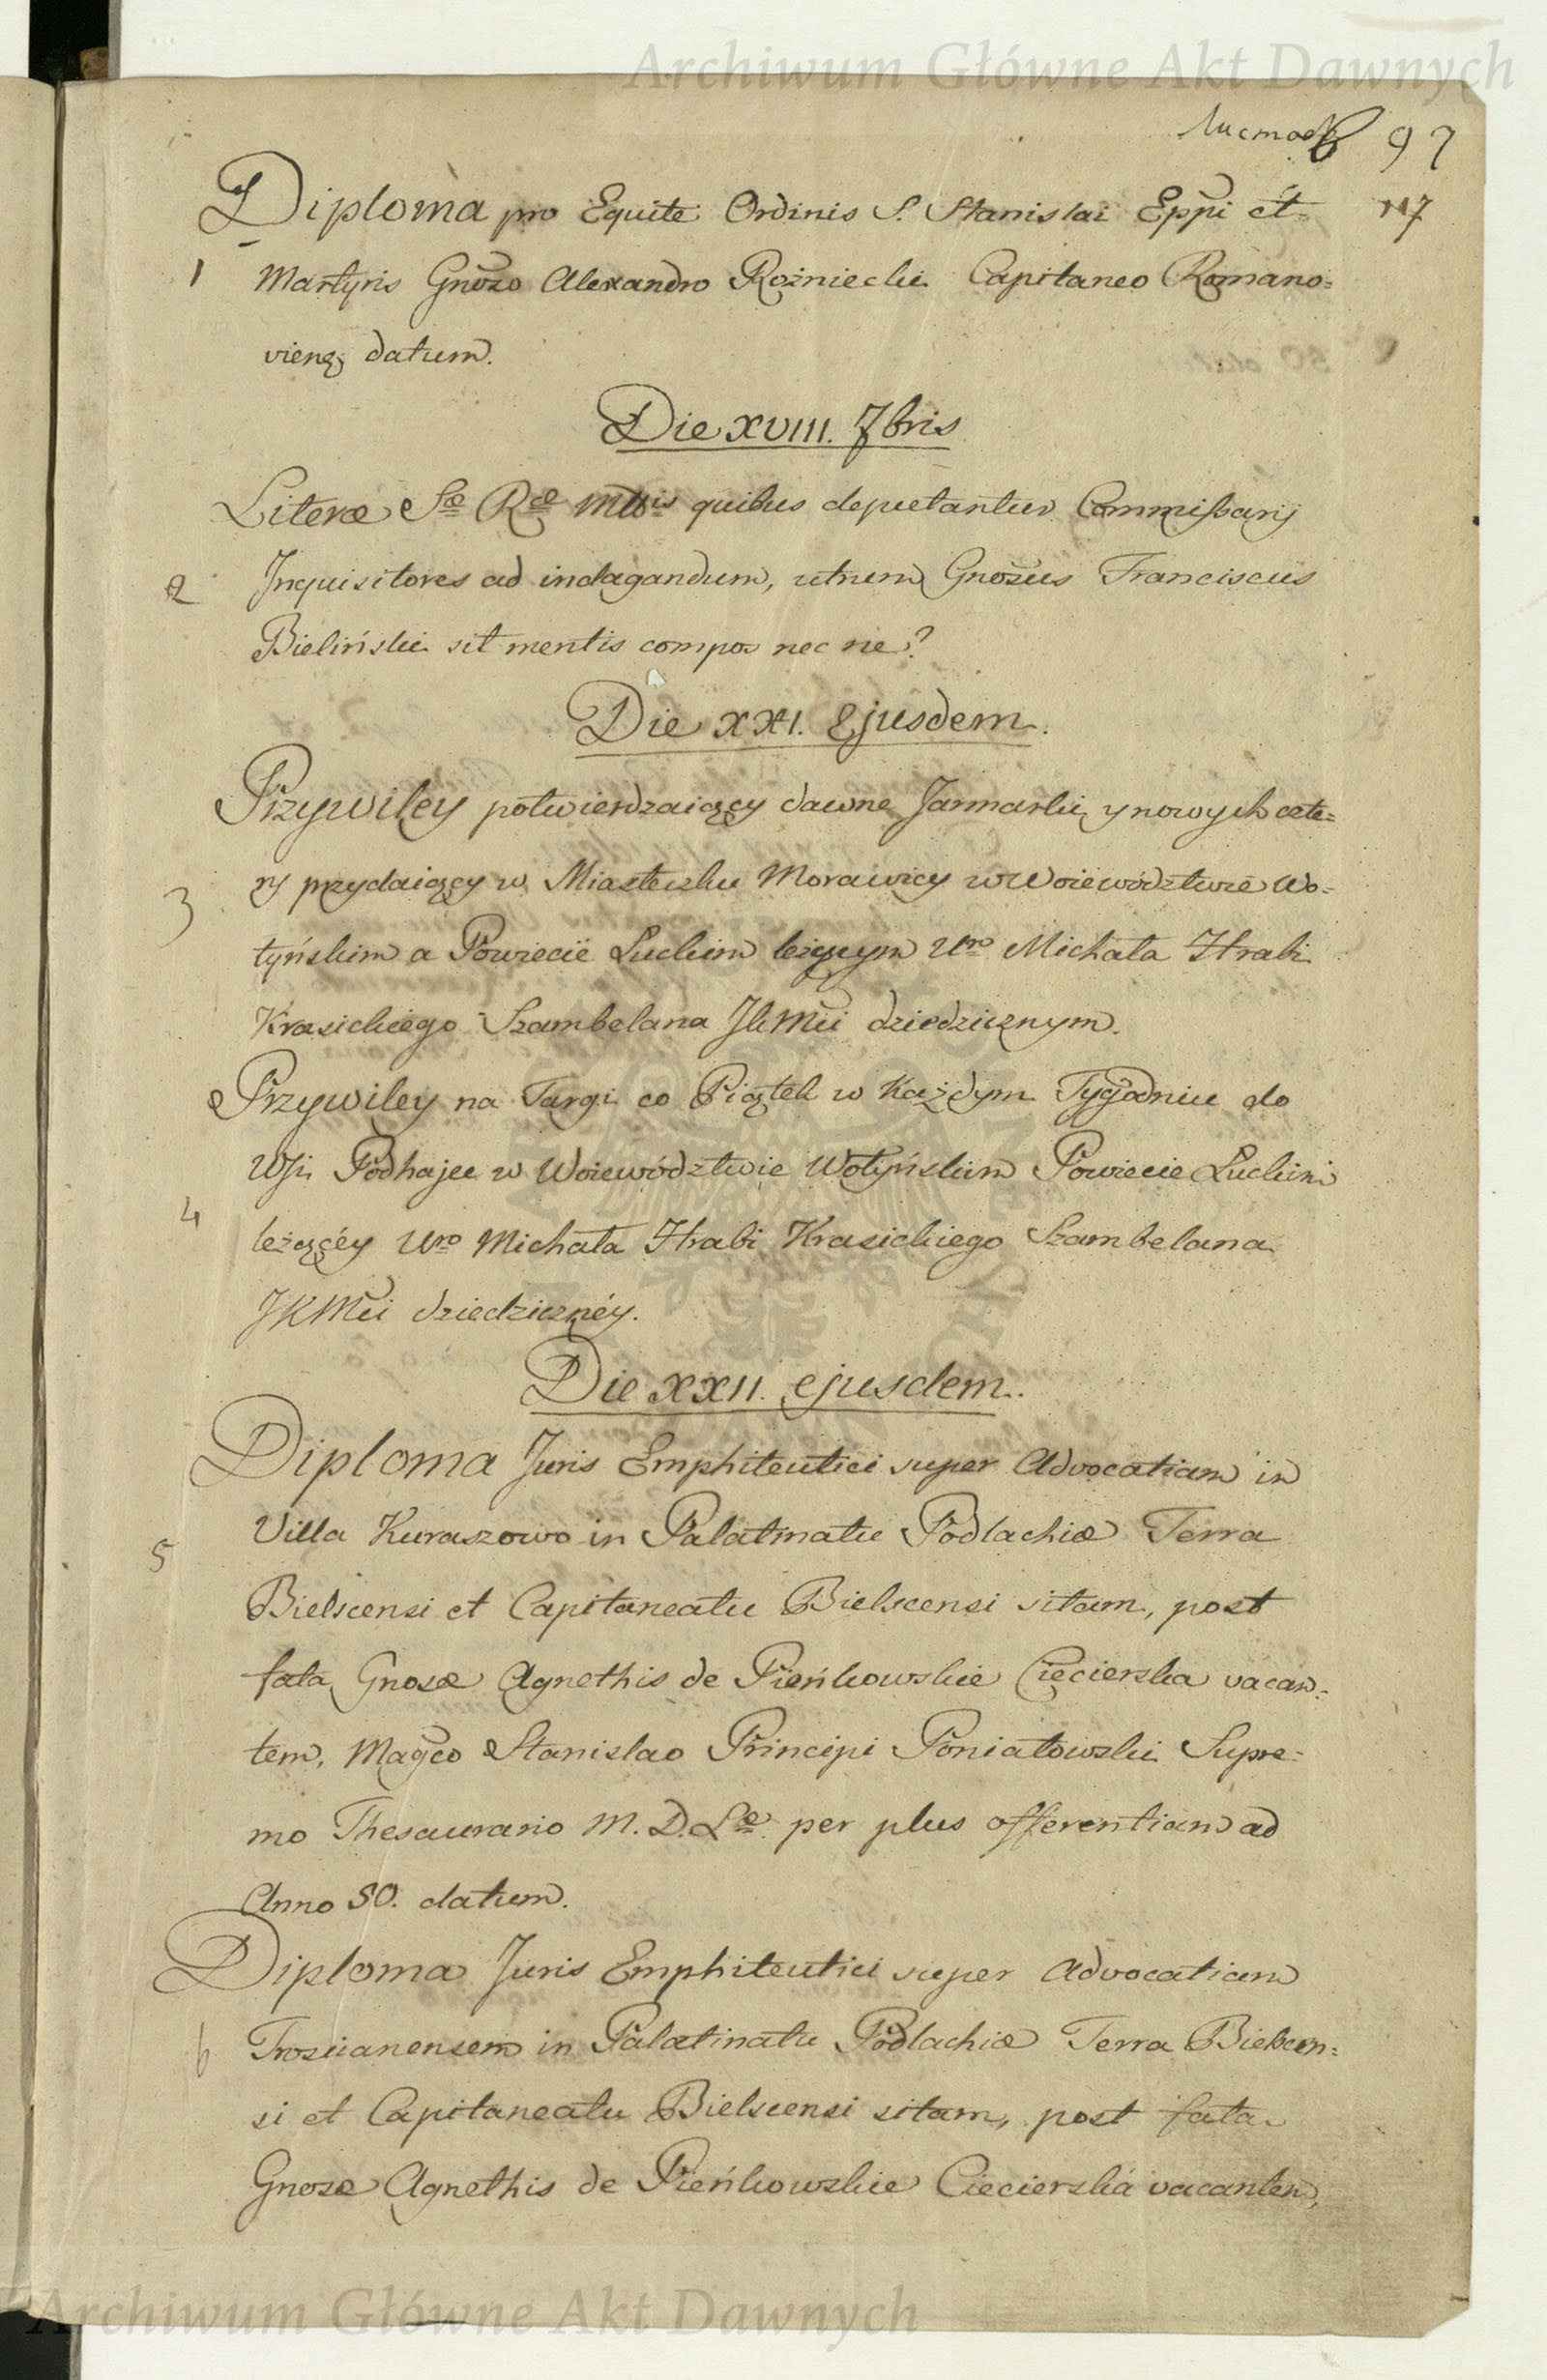 Archiwum Główne Akt Dawnych
Листовъ 97
117
Diploma pro Equite Ordinis S. Stanislai Eppi et
1 Martyris Gnoso Alexandro Rożniecki Capitaneo Romano=
vien: datum.
Die XVIII. 7bris
Literæ Sæ Ræ Mttis quibus deputantur Commissarij
2 Inquisitores ad indagandum, utrum Gnosus Franciscus
Bieliński sit mentis compos nec ne?
Die XXI. Ejusdem.
Przywiley potwierdzaiący dawne Jarmarki, y nowych czte=
3 ry przydaiący w Miasteczku Morawicy w Woiewództwie Wo=
łyńskim a Powiecie Luckim leżącym Uro Michała Hrabi
Krasickiego Szambelana JKMci dziedzicznym.
Przywiley na Targi co Piątek w Każdym Tygodniu do
Wsi Podhajec w Woiewództwie Wołyńskim Powiecie Luckim
4 leżącéy Uro Michała Hrabi Krasickiego Szambelana
JKMci dziedzicznéy.
Die XXII. ejusdem.
Diploma Juris Emphiteutici super Advocatiam in
Villa Kuraszowo in Palatinatu Podlachiæ Terra
5 Bielscensi et Capitaneatu Bielscensi sitam, post
fata Gnosæ Agnethis de Pieńkowskie Ciecierska vacan=
tem, Magco Stanislao Principi Poniatowski Supre=
mo Thesaurario M. D. Læ per plus offerentiam ad
Anno 50. datum.
Diploma Juris Emphiteutici super Advocatiam
6 in Palatinatu Podlachiæ Terra Bielscen=
si et Capitaneatu Bielscensi sitam, post fata
Gnosæ Agnethis de Pieńkowskie Ciecierska vacantem,
Archiwum Główne Akt Dawnych